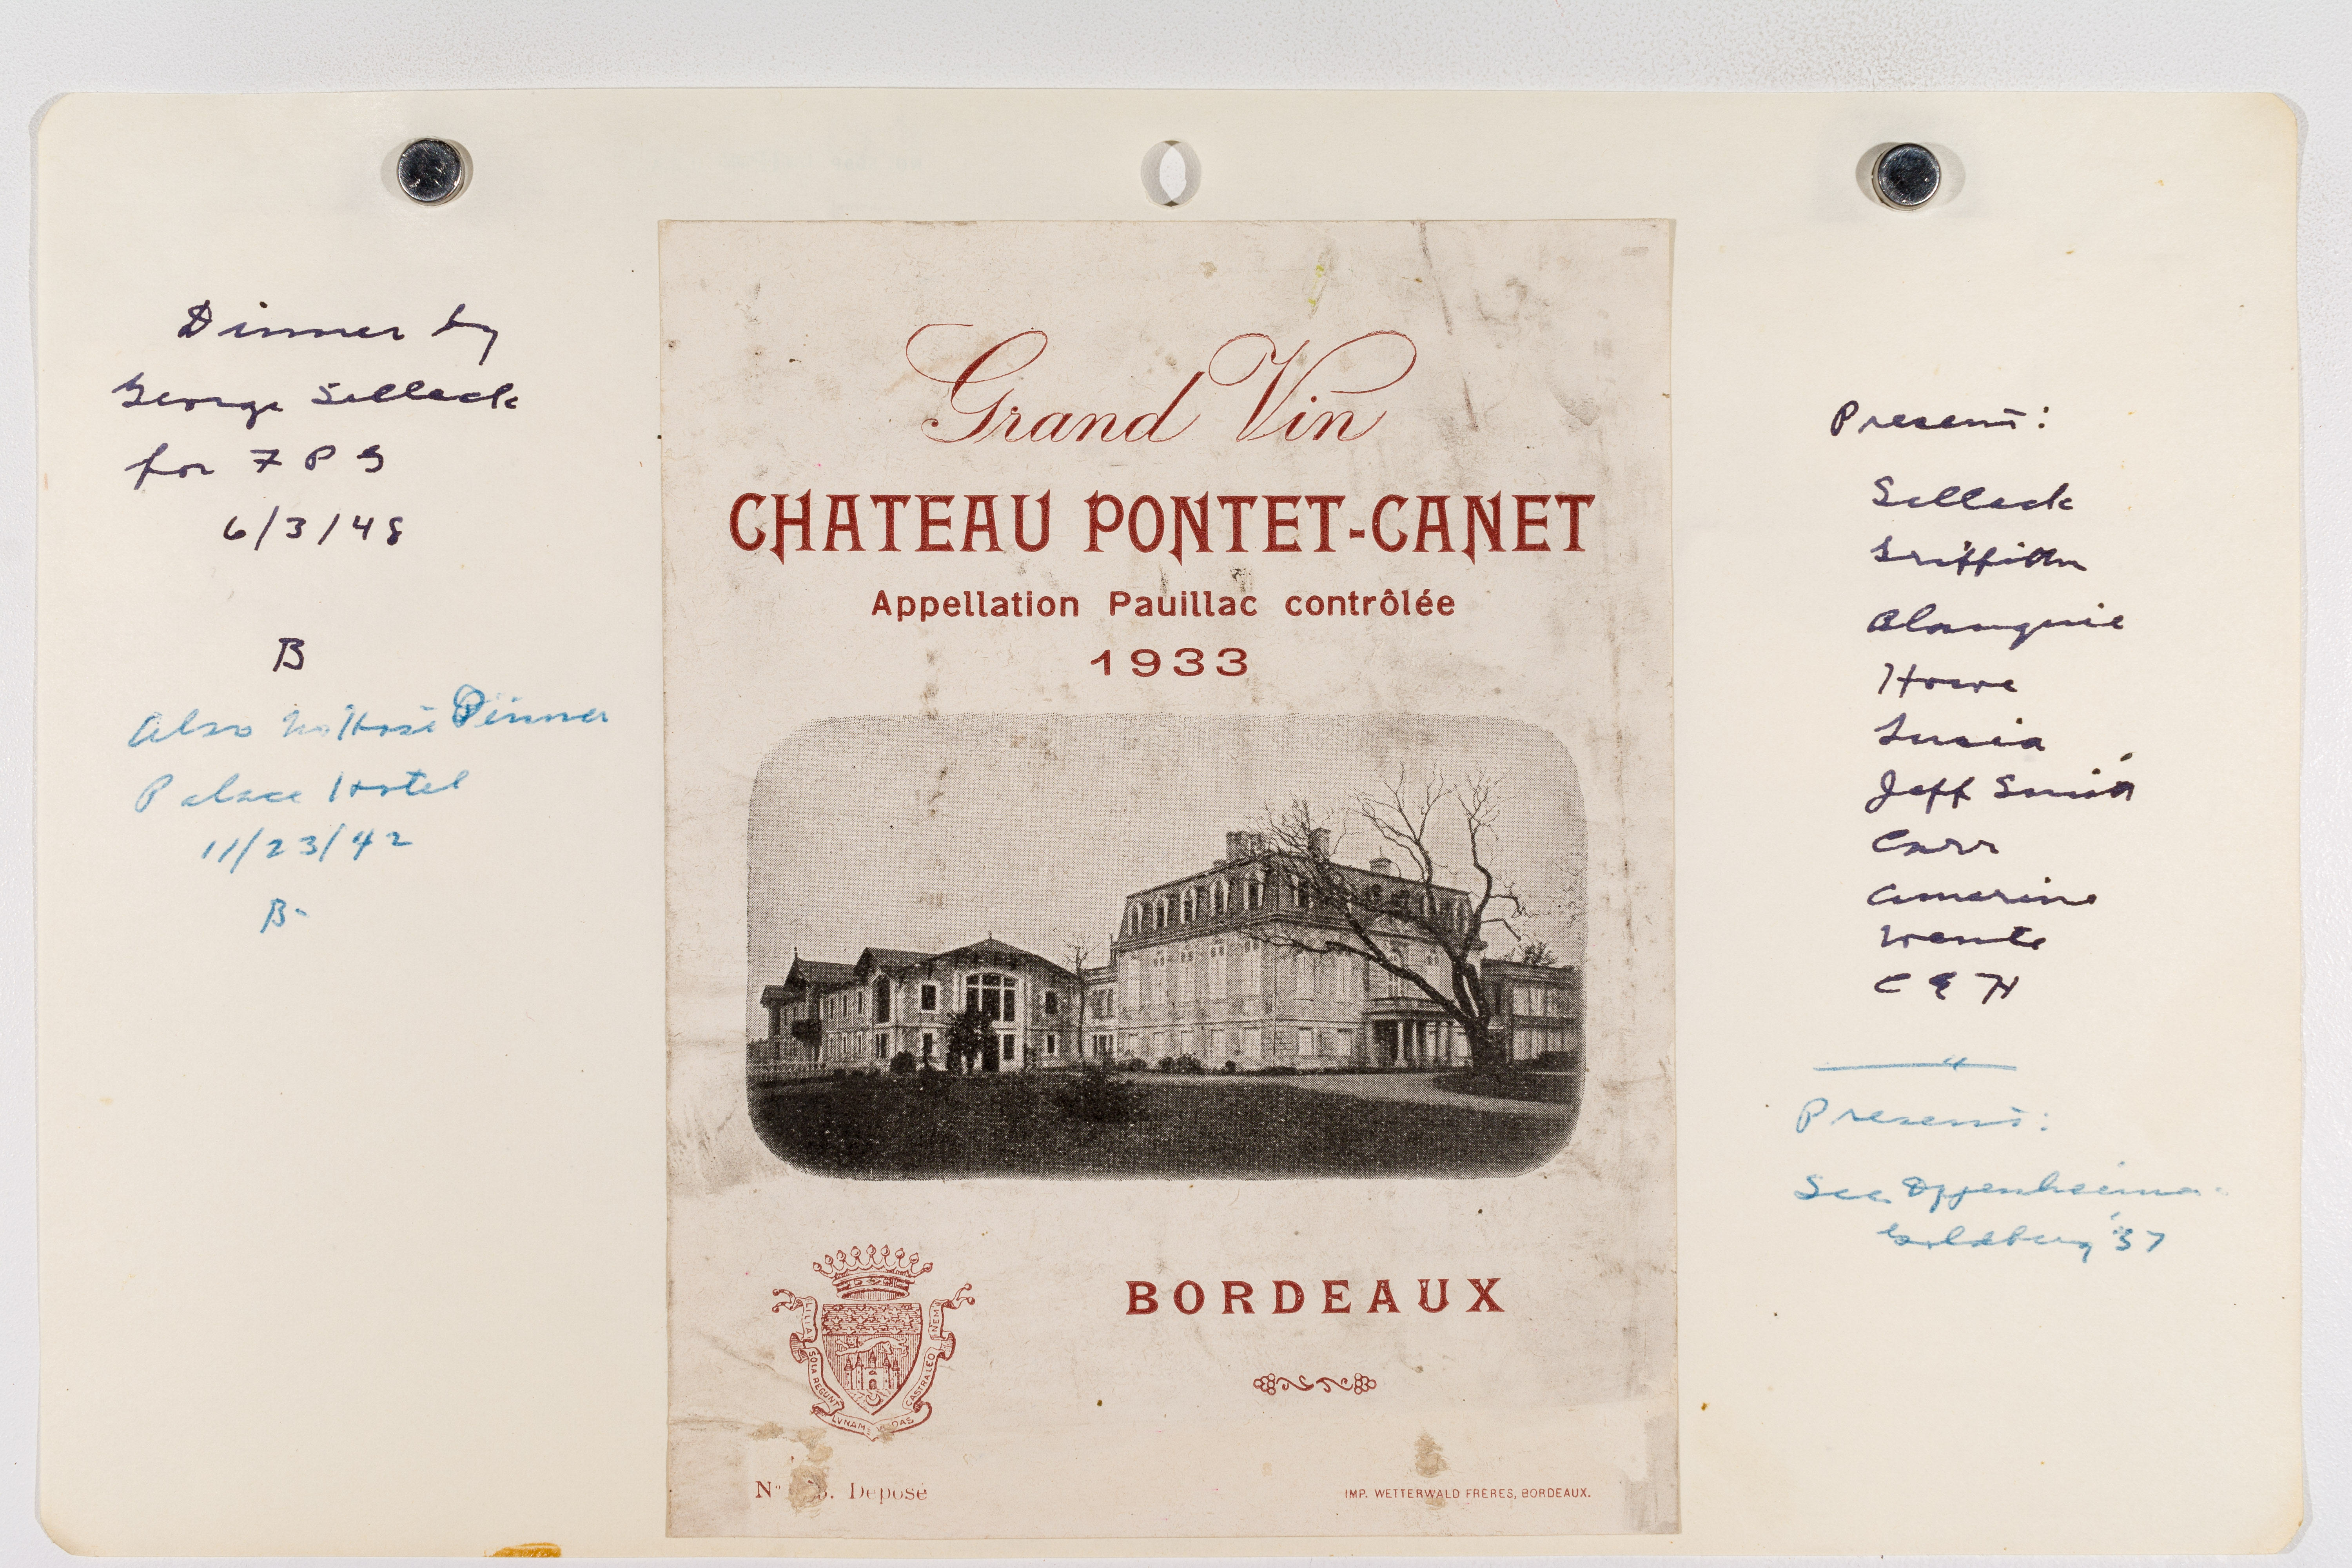 Dinner by
George Selleck
for F P G
6/3/48
B
Also No Host Dinner
Palace Hotel
11/23/42
B-
Grand Vin
CHATEAU PONTET-CANET
Appellation Pauillac contrôlée
1933
BORDEAUX
LILIA SOLA REGUNT LVNAM UNDAS CASTRA LEONEM
Nº Déposé
IMP. WETTERWALD FRÈRES, BORDEAUX.
Present:
Selleck
Griffith
Howe
Lucia
Jeff Smith
Carr
Amerine
Wente
C E H
Present:
See Oppenheimer
Goldberg '37